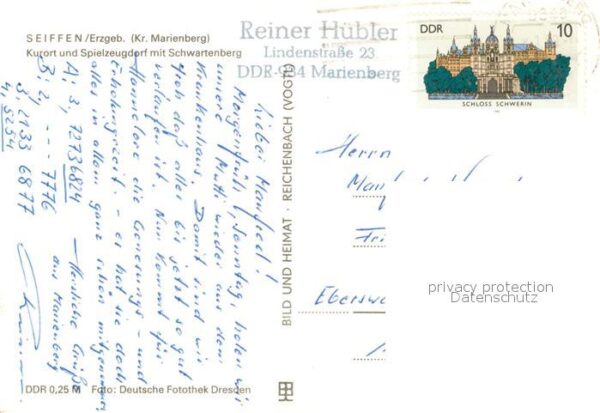 SEIFFEN /Erzgeb. (Kr. Marienberg)
Kurort und Spielzeugdorf mit Schwartenberg
Reiner Hübler
Lindenstraße 23
DDR-934 Marienberg
DDR
10
SCHLOSS SCHWERIN
Lieber Manfred!
Morgen früh, Sonntag, holen wir
unsere Mutti wieder aus dem
Krankenhaus. Damit sind wir
froh daß alles bis jetzt so gut
verlaufen ist. Nun kommt für
Hannelore die Genesungs- und
Erholungszeit - es hat sie doch
alles in allem ganz schön mitgenommen
A, 3, 72736824
B, 2, - - - 7776
3, 2133 6877
4, 5254
Herzliche Grüße
aus Marienberg
BILD UND HEIMAT · REICHENBACH (VOGTL)
Herrn
Man
Fri
Ebersw
privacy protection
Datenschutz
DDR 0,25 M Foto: Deutsche Fotothek Dresden